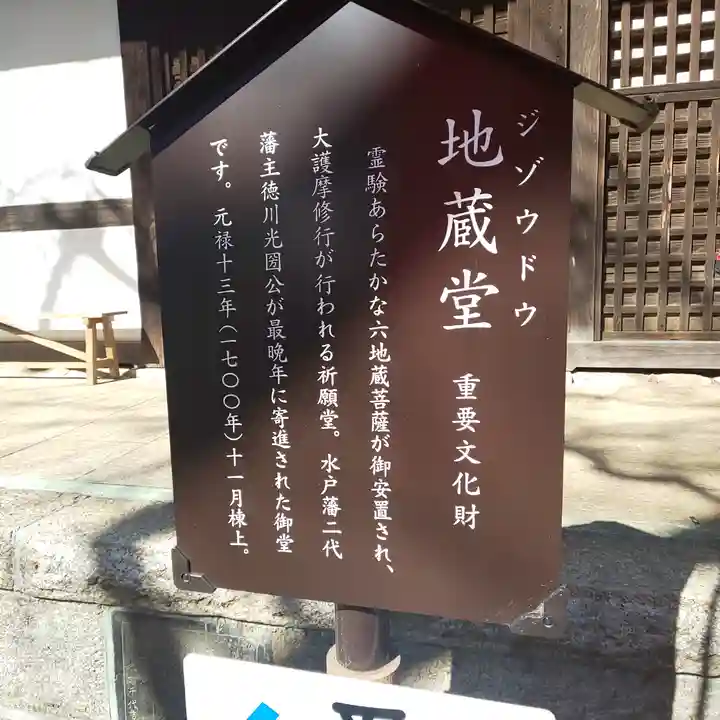 ジゾウドウ
地蔵堂 重要文化財
霊験あらたかな六地蔵菩薩が御安置され、
大護摩修行が行われる祈願堂。水戸藩二代
藩主徳川光圀公が最晩年に寄進された御堂
です。元禄十三年(一七〇〇年)十一月棟上。